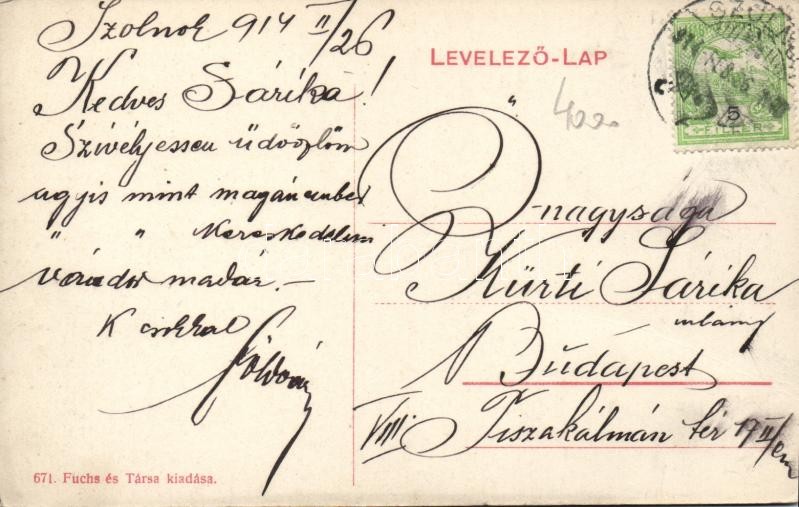 Szolnok 914 II/26
Kedves Sárika!
Szivélyessen üdvözlöm
ugyis mint magánember
" " kereskedelmi
vándor madár.-
K csókkal
LEVELEZŐ-LAP
400.
5
FILLER
nagysága
Kürti Sárika
Budapest
VIII. Tiszakálmán tér 17 II/em
671. Fuchs és Társa kiadása.